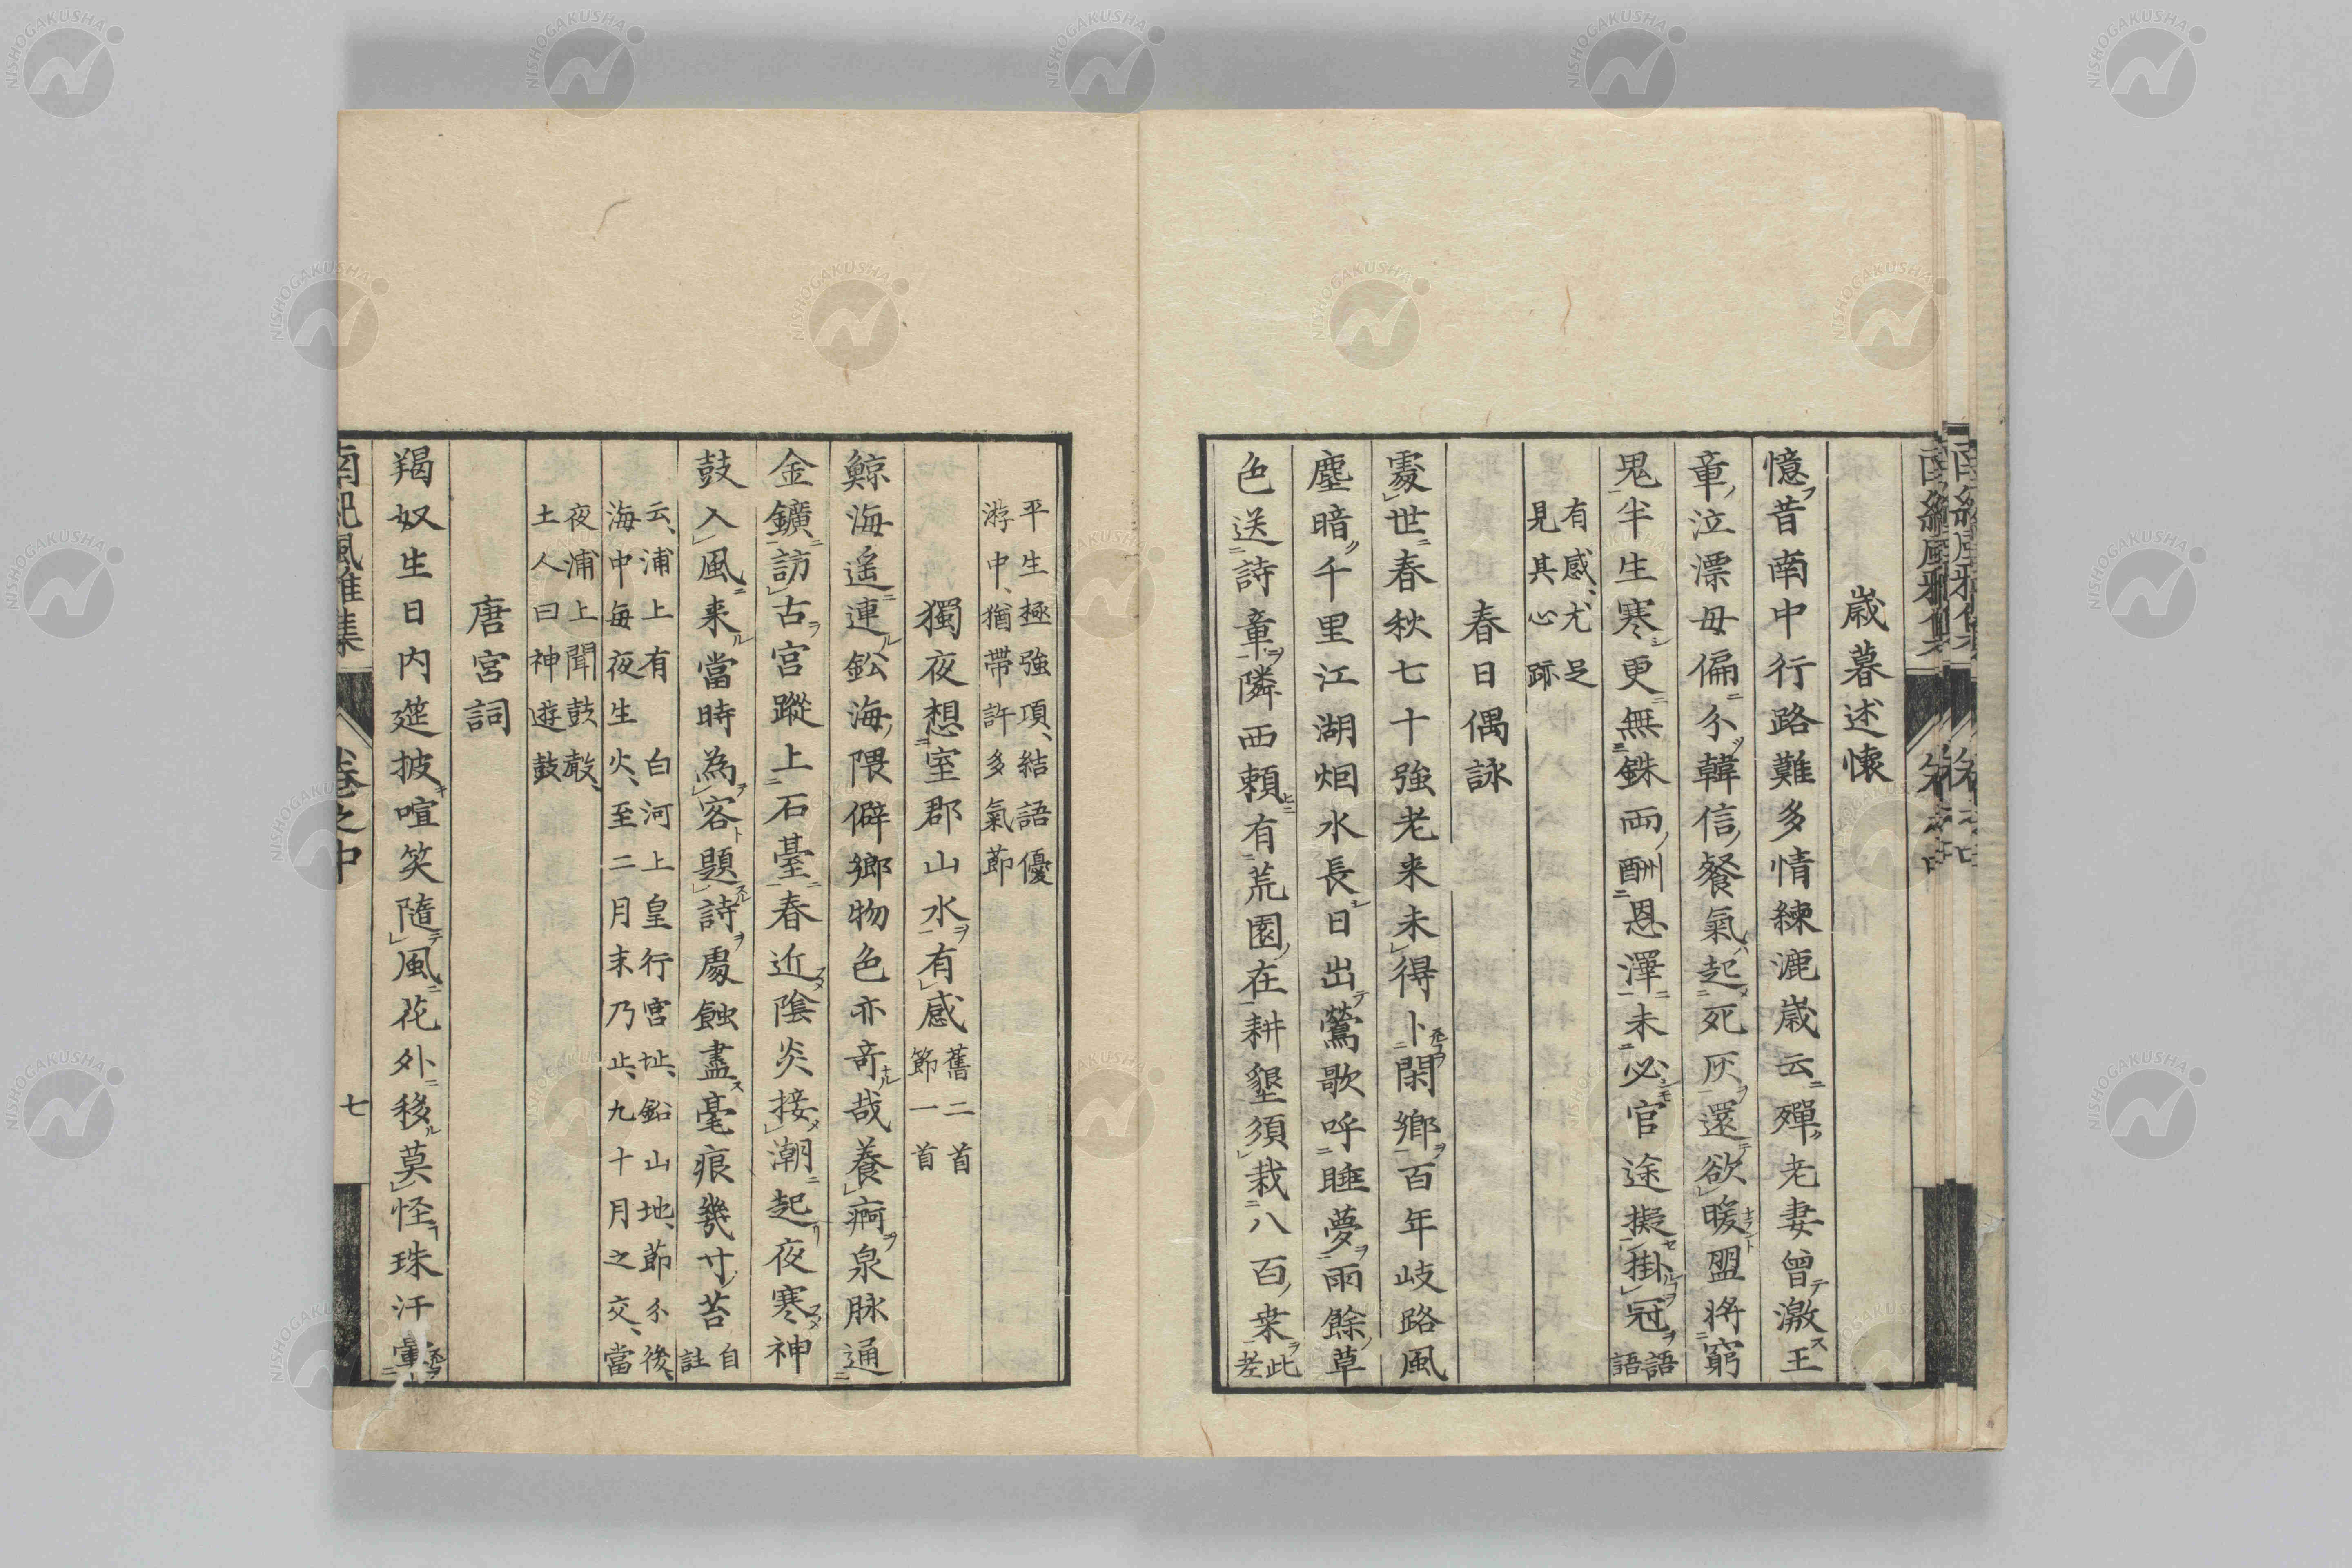 歳暮述懷
憶昔南中行路難多情練漉歳云殫老妻曾激王
章泣漂母偏分韓信餐氣起死灰還欲暖盟將窮
鬼半生寒更無銖両酬恩澤未必官途擬掛冠語語
有感、尤足
見其心跡
春日偶詠
處世春秋七十強老来未得卜閑鄉百年岐路風
塵暗千里江湖烟水長日出鶯歌呼睡夢雨餘草
色送詩章隣西頼有荒園在耕墾須栽八百桒此老
平生極強項、結語優
游中、猶帶許多氣節
獨夜想室郡山水有感舊二首
節一首
鯨海遥連鈆海隈僻鄉物色亦竒哉養痾泉脉通
金鑛訪古宮蹤上石臺春近陰炎接潮起夜寒神
鼓入風来當時為客題詩處蝕盡毫痕幾寸苔自註
云、浦上有白河上皇行宮址、鉛山地、節分後、
海中每夜生火、至二月末乃止、九十月之交、當
夜浦上聞鼓聲、
土人曰神遊鼓
唐宮詞
羯奴生日内筵披喧笑隨風花外移莫怪珠汗
南紀風雅集
卷之中
七
NISHOGAKUSHA